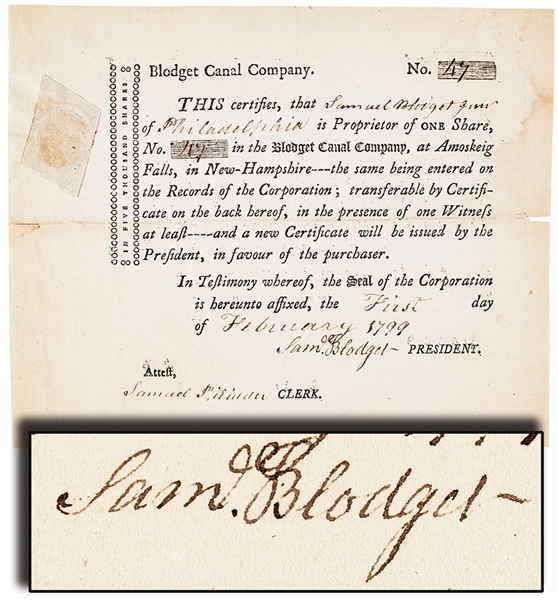 Blodget Canal Company. No. 47
THIS certifies, that Samuel Blodget Junr
of Philadelphia is Proprietor of ONE Share,
No. 47 in the Blodget Canal Company, at Amoskeig
Falls, in New-Hampshire---the same being entered on
the Records of the Corporation; transferable by Certifi-
cate on the back hereof, in the presence of one Witneſs
at leaſt----and a new Certificate will be issued by the
Preſident, in favour of the purchaser.
In Teſtimony whereof, the Seal of the Corporation
is hereunto affixed, the First day
of February 1799
Samˡ. Blodget PRESIDENT.
Atteſt,
Samuel P. Kidder CLERK.
IN FIVE THOUSAND SHARES
Samˡ. Blodget